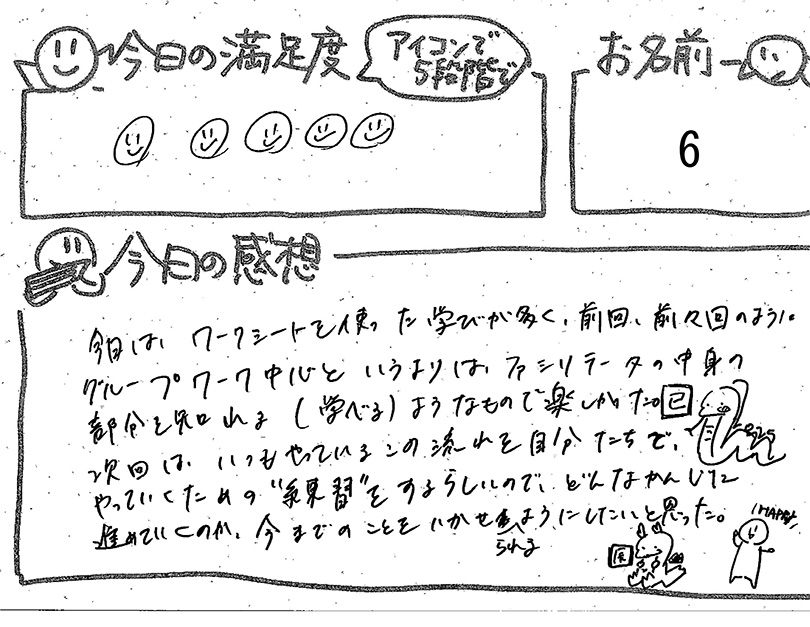 今日の満足度
アイコンで
5段階で
お名前
6
今日の感想
今日は、ワークシートを使った学びが多く、前回、前々回のように
グループワーク中心というよりは、ファシリテータの中身の
部分を知れる(学べる)ようなもので楽しかった。
次回は、いつもやっているこの流れを自分たちで、
やっていくための"練習"をするらしいので、どんなかんじに
進めていくのか、今までのことをいかせるようにしたいと思った。
られる
HAPPY